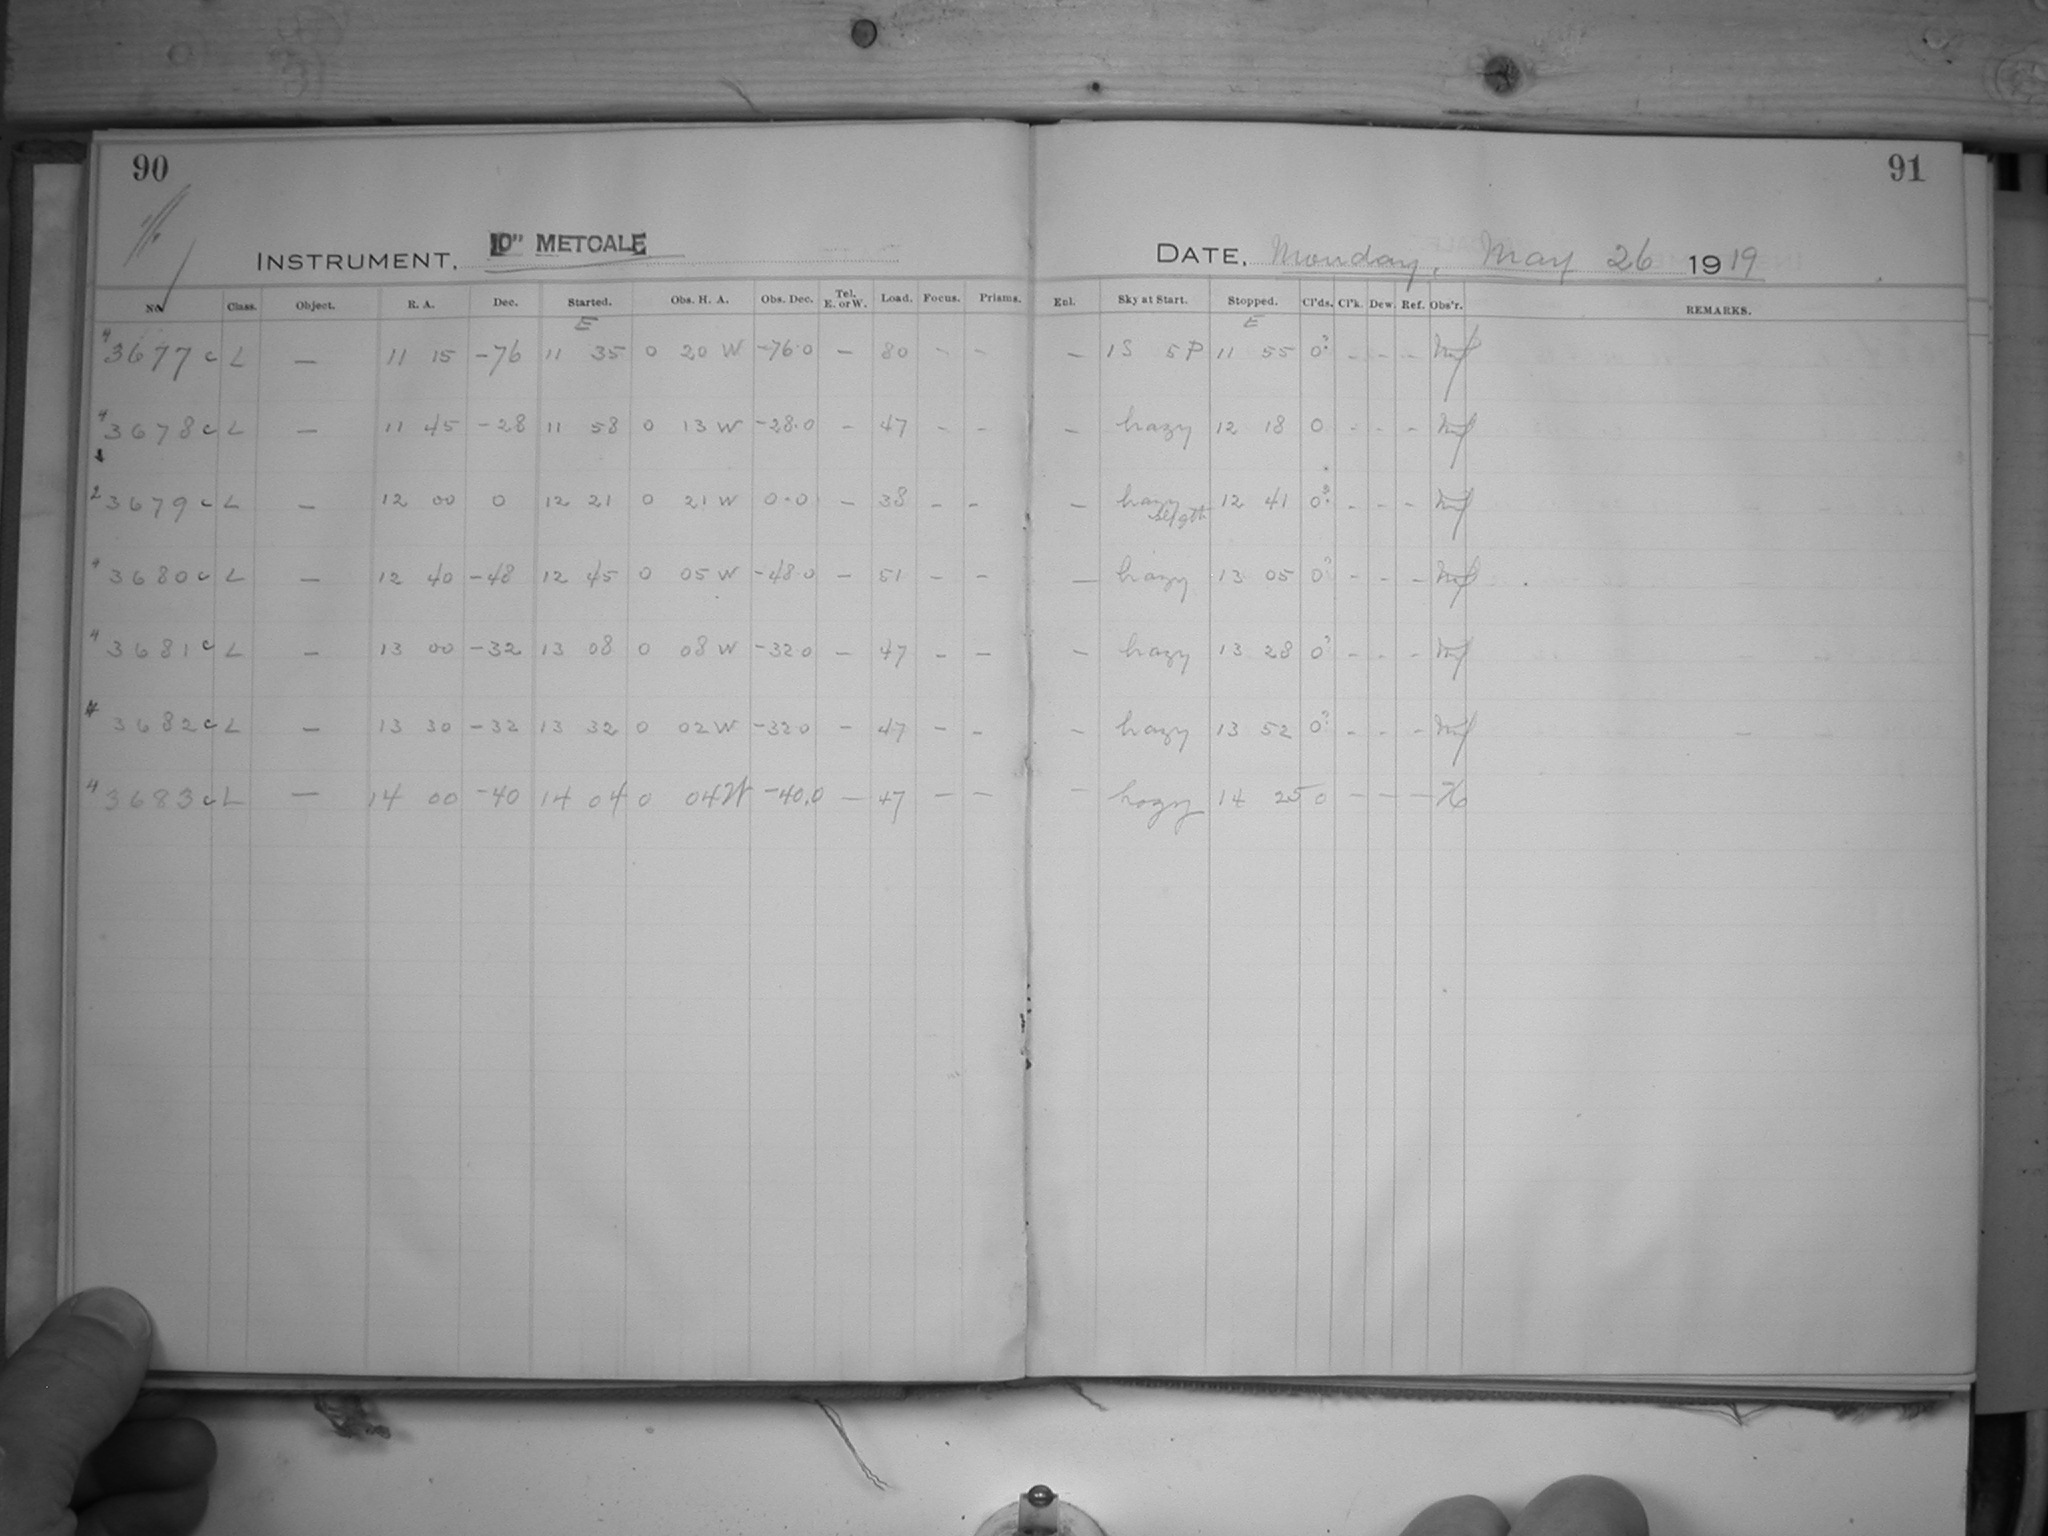 90
INSTRUMENT. 10" METCALF
No. Class. Object. R. A. Dec. Started. Obs. H. A. Obs. Dec. Tel. E. or W. Load. Focus. Prisms.
E
4 3677 c L — 11 15 -76 11 35 0 20 W -76.0 — 80 - -
4 3678 c L — 11 45 -28 11 58 0 13 W -28.0 - 47 - -
2 3679 c L — 12 00 0 12 21 0 21 W 0.0 — 38 - -
4 3680 c L — 12 40 -48 12 45 0 05 W -48.0 — 51 - -
4 3681 c L — 13 00 -32 13 08 0 08 W -32.0 — 47 - —
4 3682 c L — 13 30 -32 13 32 0 02 W -32.0 — 47 - -
4 3683 c L — 14 00 -40 14 04 0 04 W -40.0 — 47 — —
91
DATE. Monday, May 26 1919
Enl. Sky at Start. Stopped. Cl'ds. Cl'k. Dew. Ref. Obs'r. REMARKS.
E
— 1S 5P 11 55 0? - - -
— hazy 12 18 0 - - -
— hazy 12 41 0? - - -
— hazy 13 05 0? - - -
— hazy 13 28 0? - - -
- hazy 13 52 0? - - -
- hazy 14 25 0 — — —